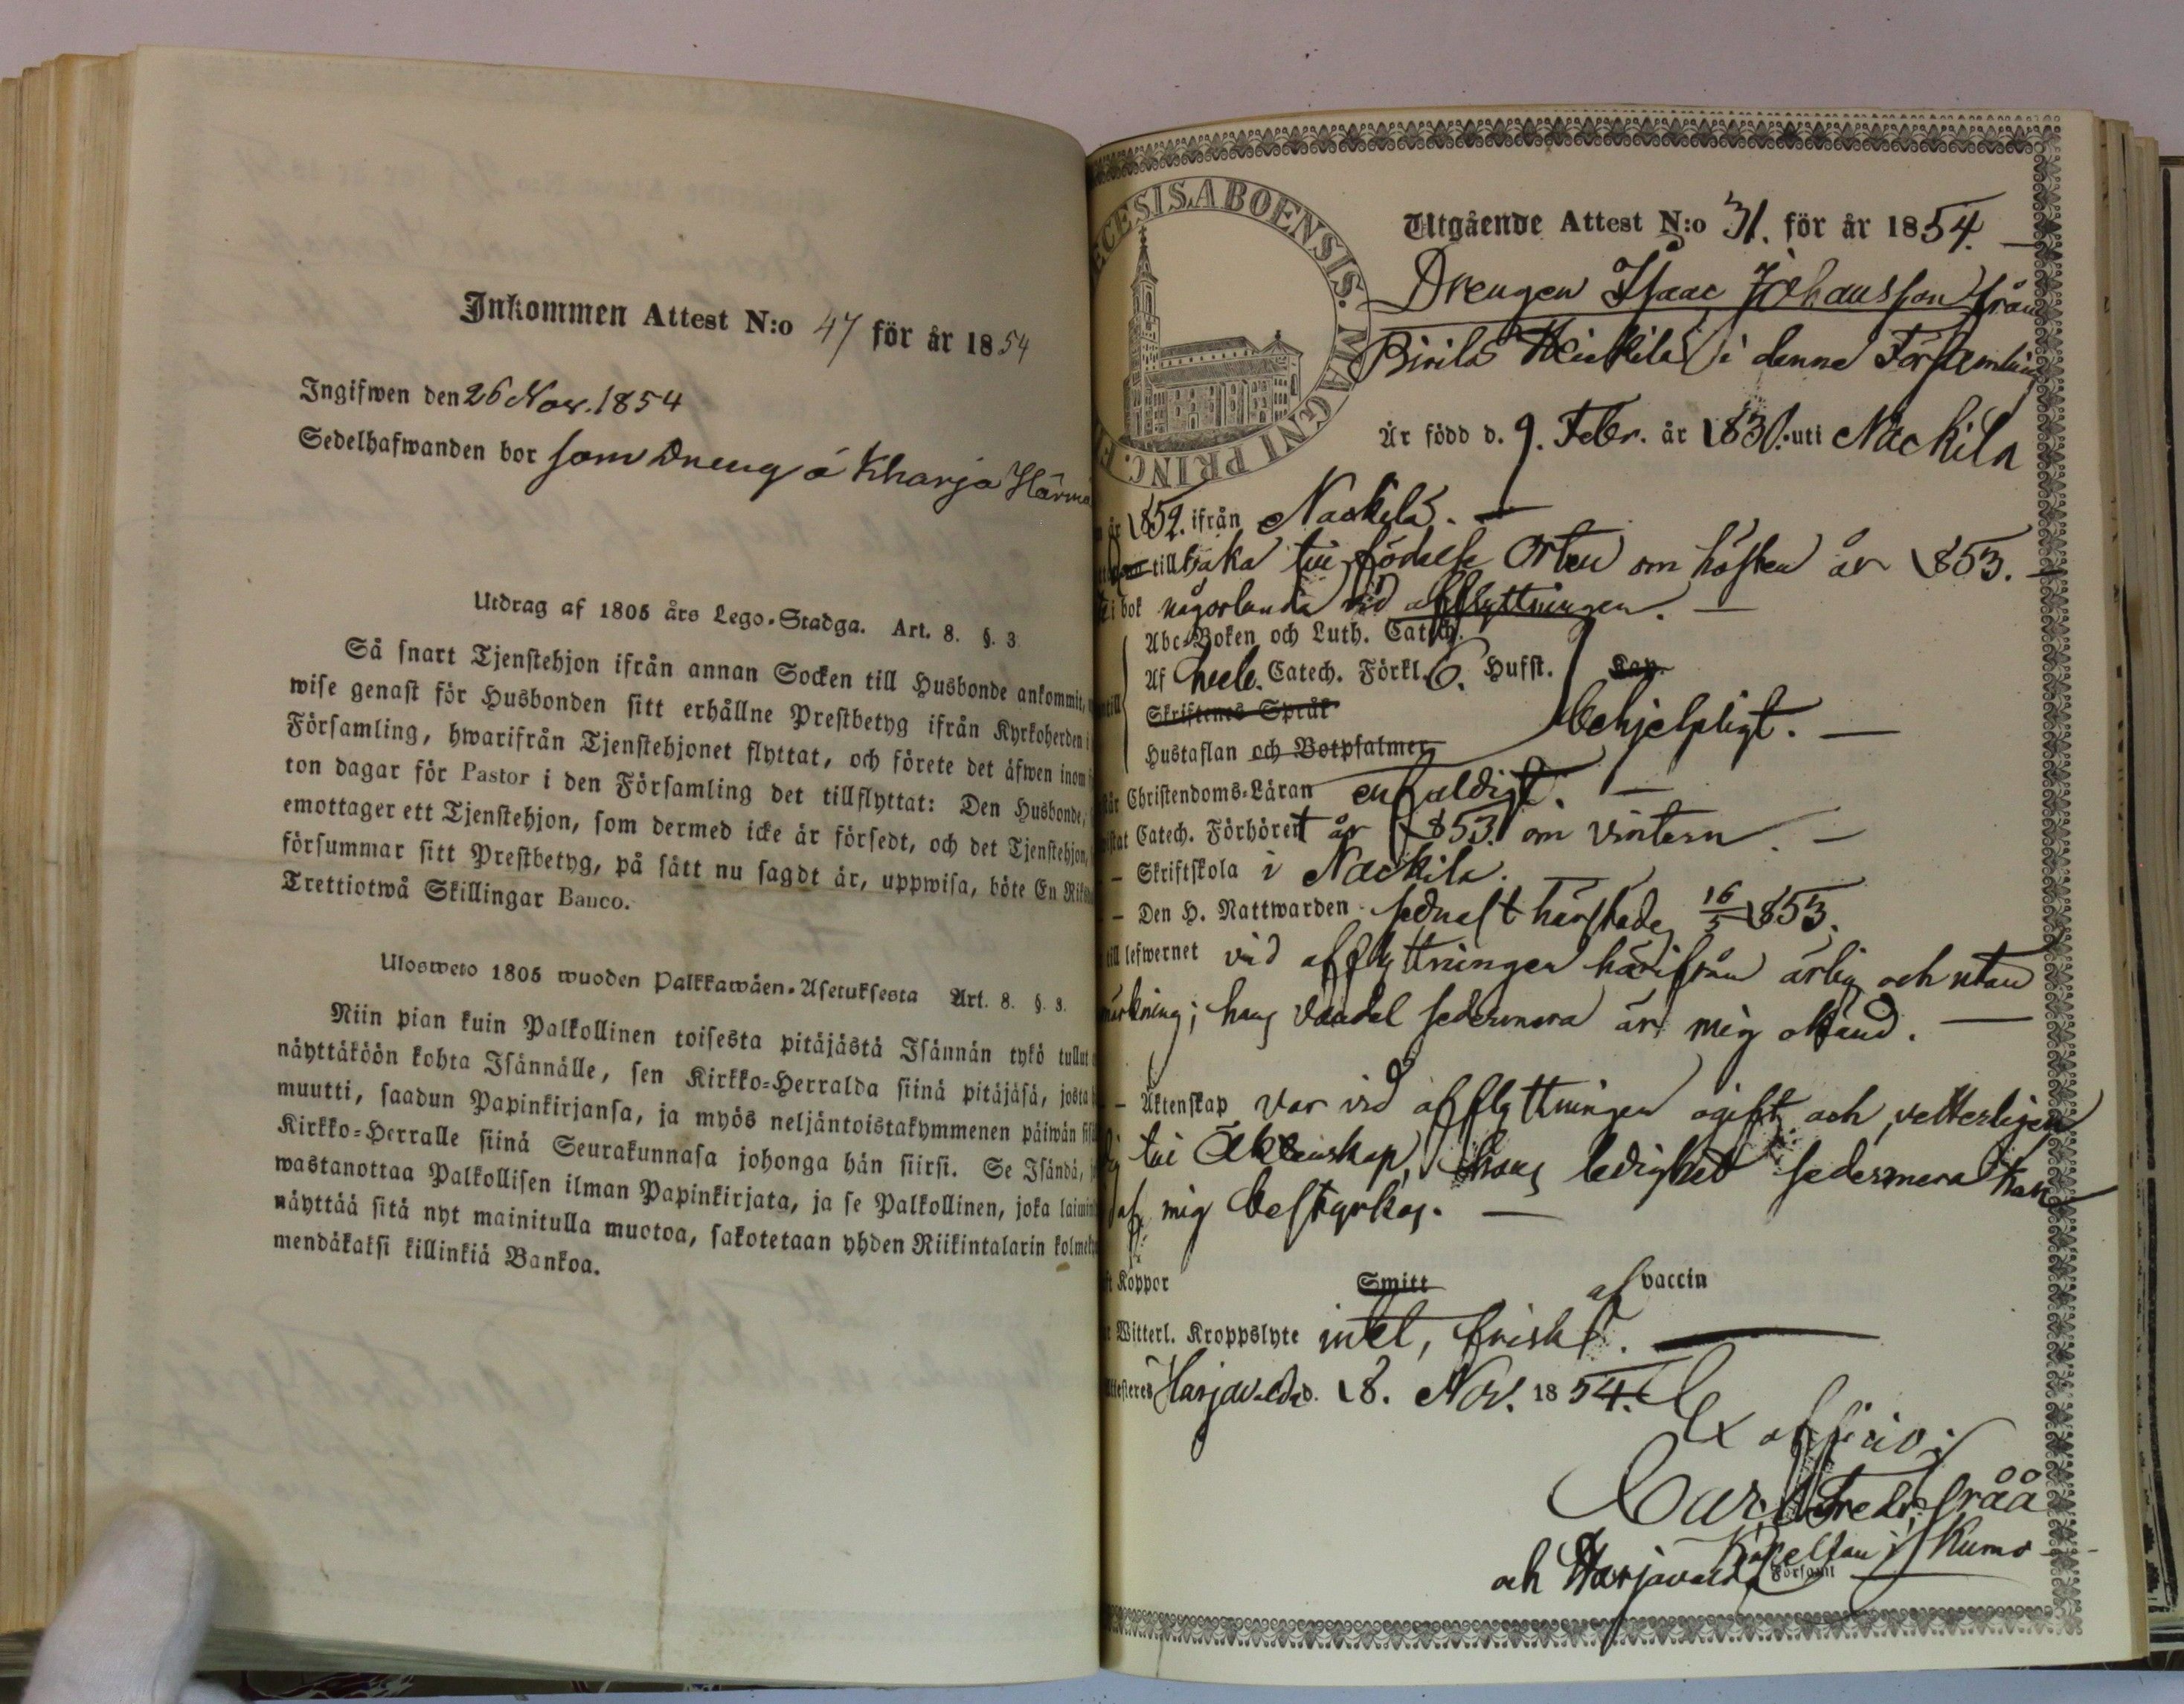 Inkommen Attest N:o 47 för år 1854
Ingifwen den 26 Nov. 1854
Sedelhafwanden bor som Dreng å Kharja Härmä
Utdrag af 1805 års Lego-Stadga. Art. 8. §. 3
Så snart Tjenstehjon ifrån annan Socken till Husbonde ankommit,
wise genast för Husbonden sitt erhållne Prestbetyg ifrån Kyrkoherden i
Församling, hwarifrån Tjenstehjonet flyttat, och förete det äfwen inom
ton dagar för Pastor i den Församling det tillflyttat: Den Husbonde,
emottager ett Tjenstehjon, som dermed icke är försedt, och det Tjenstehjon,
försummar sitt Prestbetyg, på sätt nu sagdt är, uppwisa, böte En Riks
Trettiotwå Skillingar Banco.
Ulosweto 1805 wuoden Palkkawäen-Asetuksesta Art. 8. §. 3.
Niin pian kuin Palkollinen toisesta pitäjästä Isännän tykö tullut
näyttäköön kohta Isännälle, sen Kirkko-Herralda siinä pitäjäsä, josta
muutti, saadun Papinkirjansa, ja myös neljäntoistakymmenen päiwän sisä
Kirkko-Herralle siinä Seurakunnasa johonga hän siirsi. Se Isändä,
wastanottaa Palkollisen ilman Papinkirjata, ja se Palkollinen, joka laimin
näyttää sitä nyt mainitulla muotoa, sakotetaan yhden Riikintalarin kolmeky
mendäkaksi killinkiä Bankoa.
ECESIS. ABOENSIS. MAGNI PRINC. F
Utgående Attest N:o 31. för år 1854.
Drengen Isaac Johansson från
Pirilä Heickilä i denna Församling
Är född d. 9. Febr. år 1830. uti Nackila
år 1852. ifrån Nackila.
tillbaka till födelse Orten om hösten år 1853.
i bok någorlunda vid afflyttningen.
Abc-Boken och Luth. Catech.
Af hela Catech. Förkl. 6. Hufst. Kap.
Skriftenes Språk behjelpligt.
Hustaflan och Botpsalmer
Christendoms-Läran enfaldigt.
Catech. Förhöret år 1853. om vintern.
– Skriftskola i Nackila.
– Den H. Nattwarden sednast härstädes 16/5 1853.
till lefwernet vid afflyttningen härifrån ärlig och utan
märkning; hans vandel sedermera är mig okänd.
– Äktenskap var vid afflyttningen ogift och vetterligen
till Äktenskap, hans ledighet sedermera kan
af mig bestyrkas.
Koppor Smitt af vaccin
Witterl. Kroppslyte intet, frisk.
Attesteres Harjavalda d. 18. Nov. 1854.
Ex officio;
Carl Fredr. Gråå
Kapellan i Kumo
och Harjavalda Församl